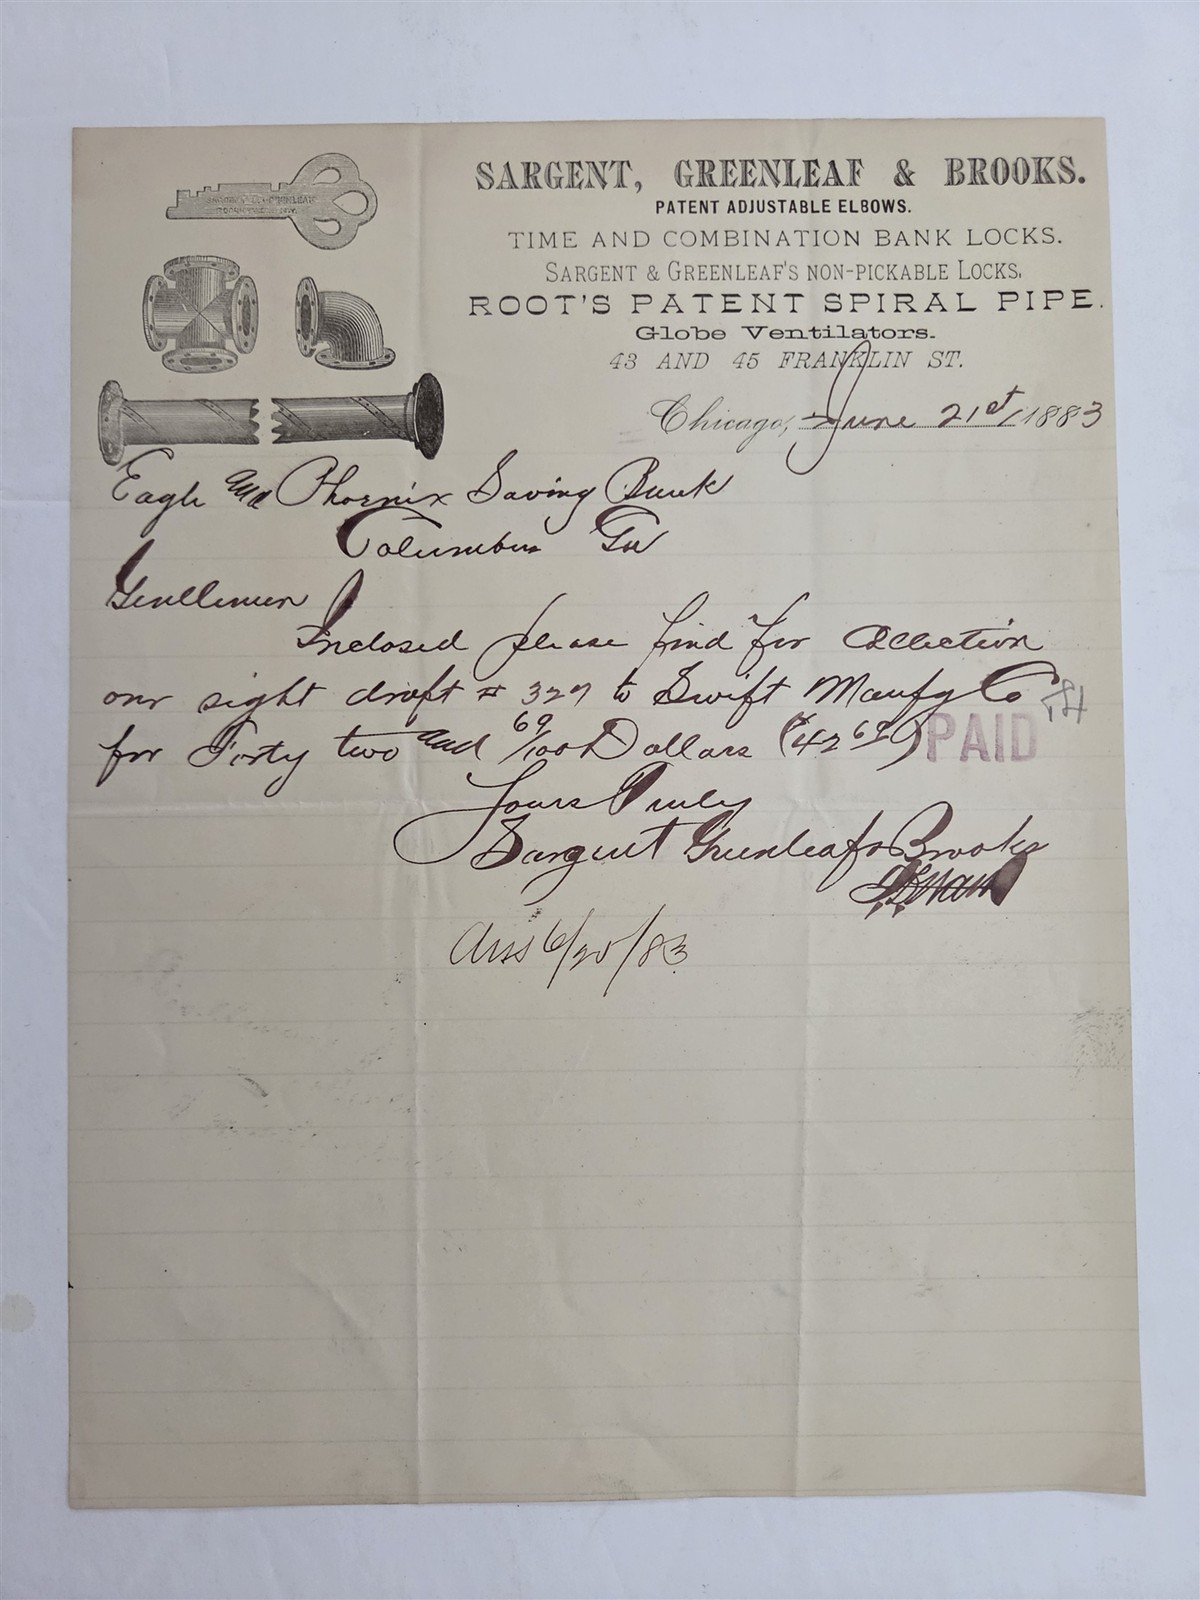 SARGENT & GREENLEAF
ROCHESTER N.Y.
SARGENT, GREENLEAF & BROOKS.
PATENT ADJUSTABLE ELBOWS.
TIME AND COMBINATION BANK LOCKS.
SARGENT & GREENLEAF'S NON-PICKABLE LOCKS,
ROOT'S PATENT SPIRAL PIPE.
Globe Ventilators.
43 AND 45 FRANKLIN ST.
Chicago, June 21st, 1883
Eagle and Phoenix Saving Bank
Columbus Ga
Gentlemen
Inclosed please find for Collection
our sight draft # 327 to Swift Manfg Co
for Forty two and 69/100 Dollars ($42 69) PAID
Yours Truly
Sargent Greenleaf & Brooks
Ans 6/25/83